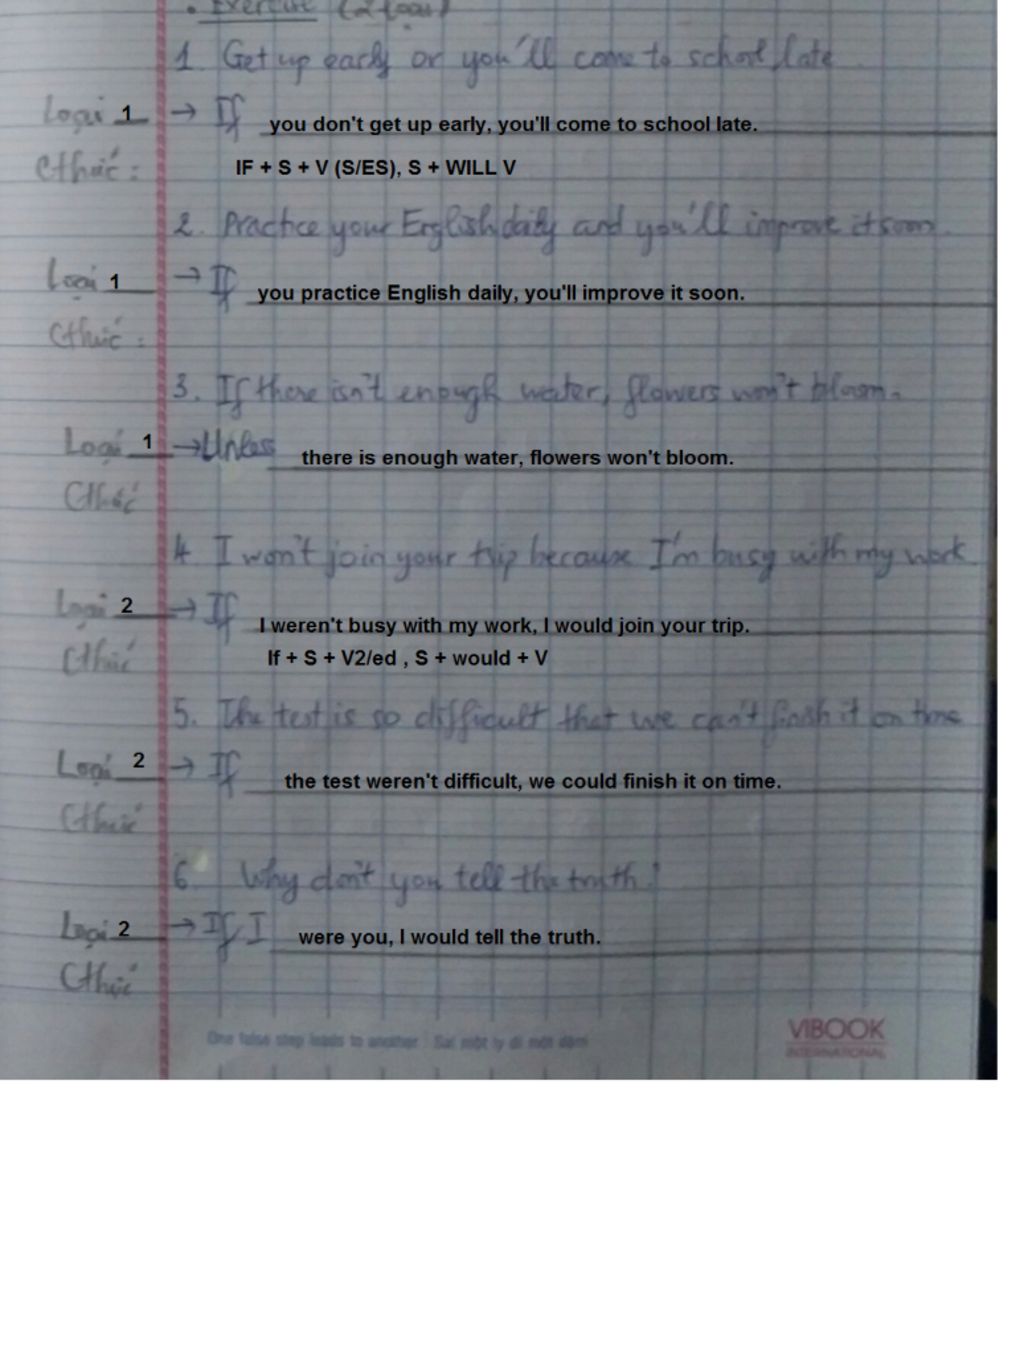 Exercise (2 loại)
1. Get up early or you'll come to school late
Loại 1 → If you don't get up early, you'll come to school late.
Cthức : IF + S + V (S/ES), S + WILL V
2. Practice your English daily and you'll improve it soon.
Loại 1 → If you practice English daily, you'll improve it soon.
Cthức :
3. If there isn't enough water, flowers won't bloom.
Loại 1 → Unless there is enough water, flowers won't bloom.
Cthức
4. I won't join your trip because I'm busy with my work
Loại 2 → If I weren't busy with my work, I would join your trip.
Cthức If + S + V2/ed , S + would + V
5. The test is so difficult that we can't finish it on time
Loại 2 → If the test weren't difficult, we could finish it on time.
Cthức
6. Why don't you tell the truth?
Loại 2 → If I were you, I would tell the truth.
Cthức
One false step leads to another : Sai một ly đi một dặm
VIBOOK
INTERNATIONAL